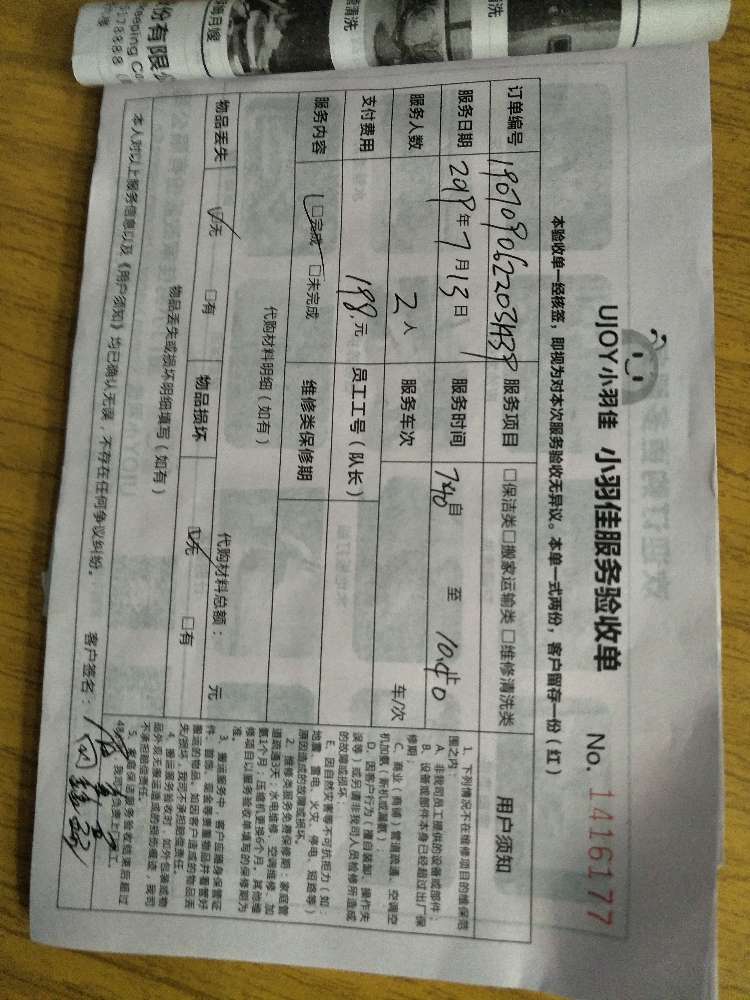 份有限
eeping Co
178888
海月嫂
清洗
清洗
UJOY小羽佳 小羽佳服务验收单
No. 1416177
本验收单一经核签，即视为对本次服务验收无异议。本单一式两份，客户留存一份（红）
订单编号 服务项目 □保洁类□搬家运输类□维修清洗类 用户须知
服务日期 2019年7月13日 服务时间 7:40 自 至 10:40
服务人数 2人 服务车次 车/次
支付费用 198.元 员工工号（队长）
服务内容 □完成 □未完成 维修类保修期
代购材料明细（如有） 代购材料总额： 元
物品丢失 □无 □有 物品损坏 □无 □有
物品丢失或损坏明细填写（如有）
本人对以上服务信息以及《用户须知》均已确认无误，不存在任何争议纠纷。 客户签名：
1、下列情况不在维修项目的维保范
围之内：
A、非我司员工提供的设备或部件；
B、设备或部件本身已经超过出厂保
修期；
C、商业（商铺）管道疏通、空调空
机加氨（新机或漏氨）；
D、因客户行为（擅自装卸、操作失
误等）或另请非我司人员检修所造成
的故障或损坏；
E、因自然灾害等不可抗拒力（如：
地震、雷电、火灾、停电、短路等）
原因造成的故障或损坏。
2、维修类服务免费保修期：家庭管
道疏通3天；水电维修、空调维修、加
氨1个月；压缩机更换6个月。其他维
修项目以服务验收单填写的保修期为
准。
3、搬运服务中，客户应随身保管证
件、首饰、现金等贵重物品并看管好
搬运的物品，如因客户造成的物品丢
失/损坏，我司不承担赔偿责任。
4、搬运服务验收时，如外包装或物
品外观无搬运造成的损伤痕迹，我司
不承担赔偿责任。
5、家庭保洁服务验收结束后超过
48